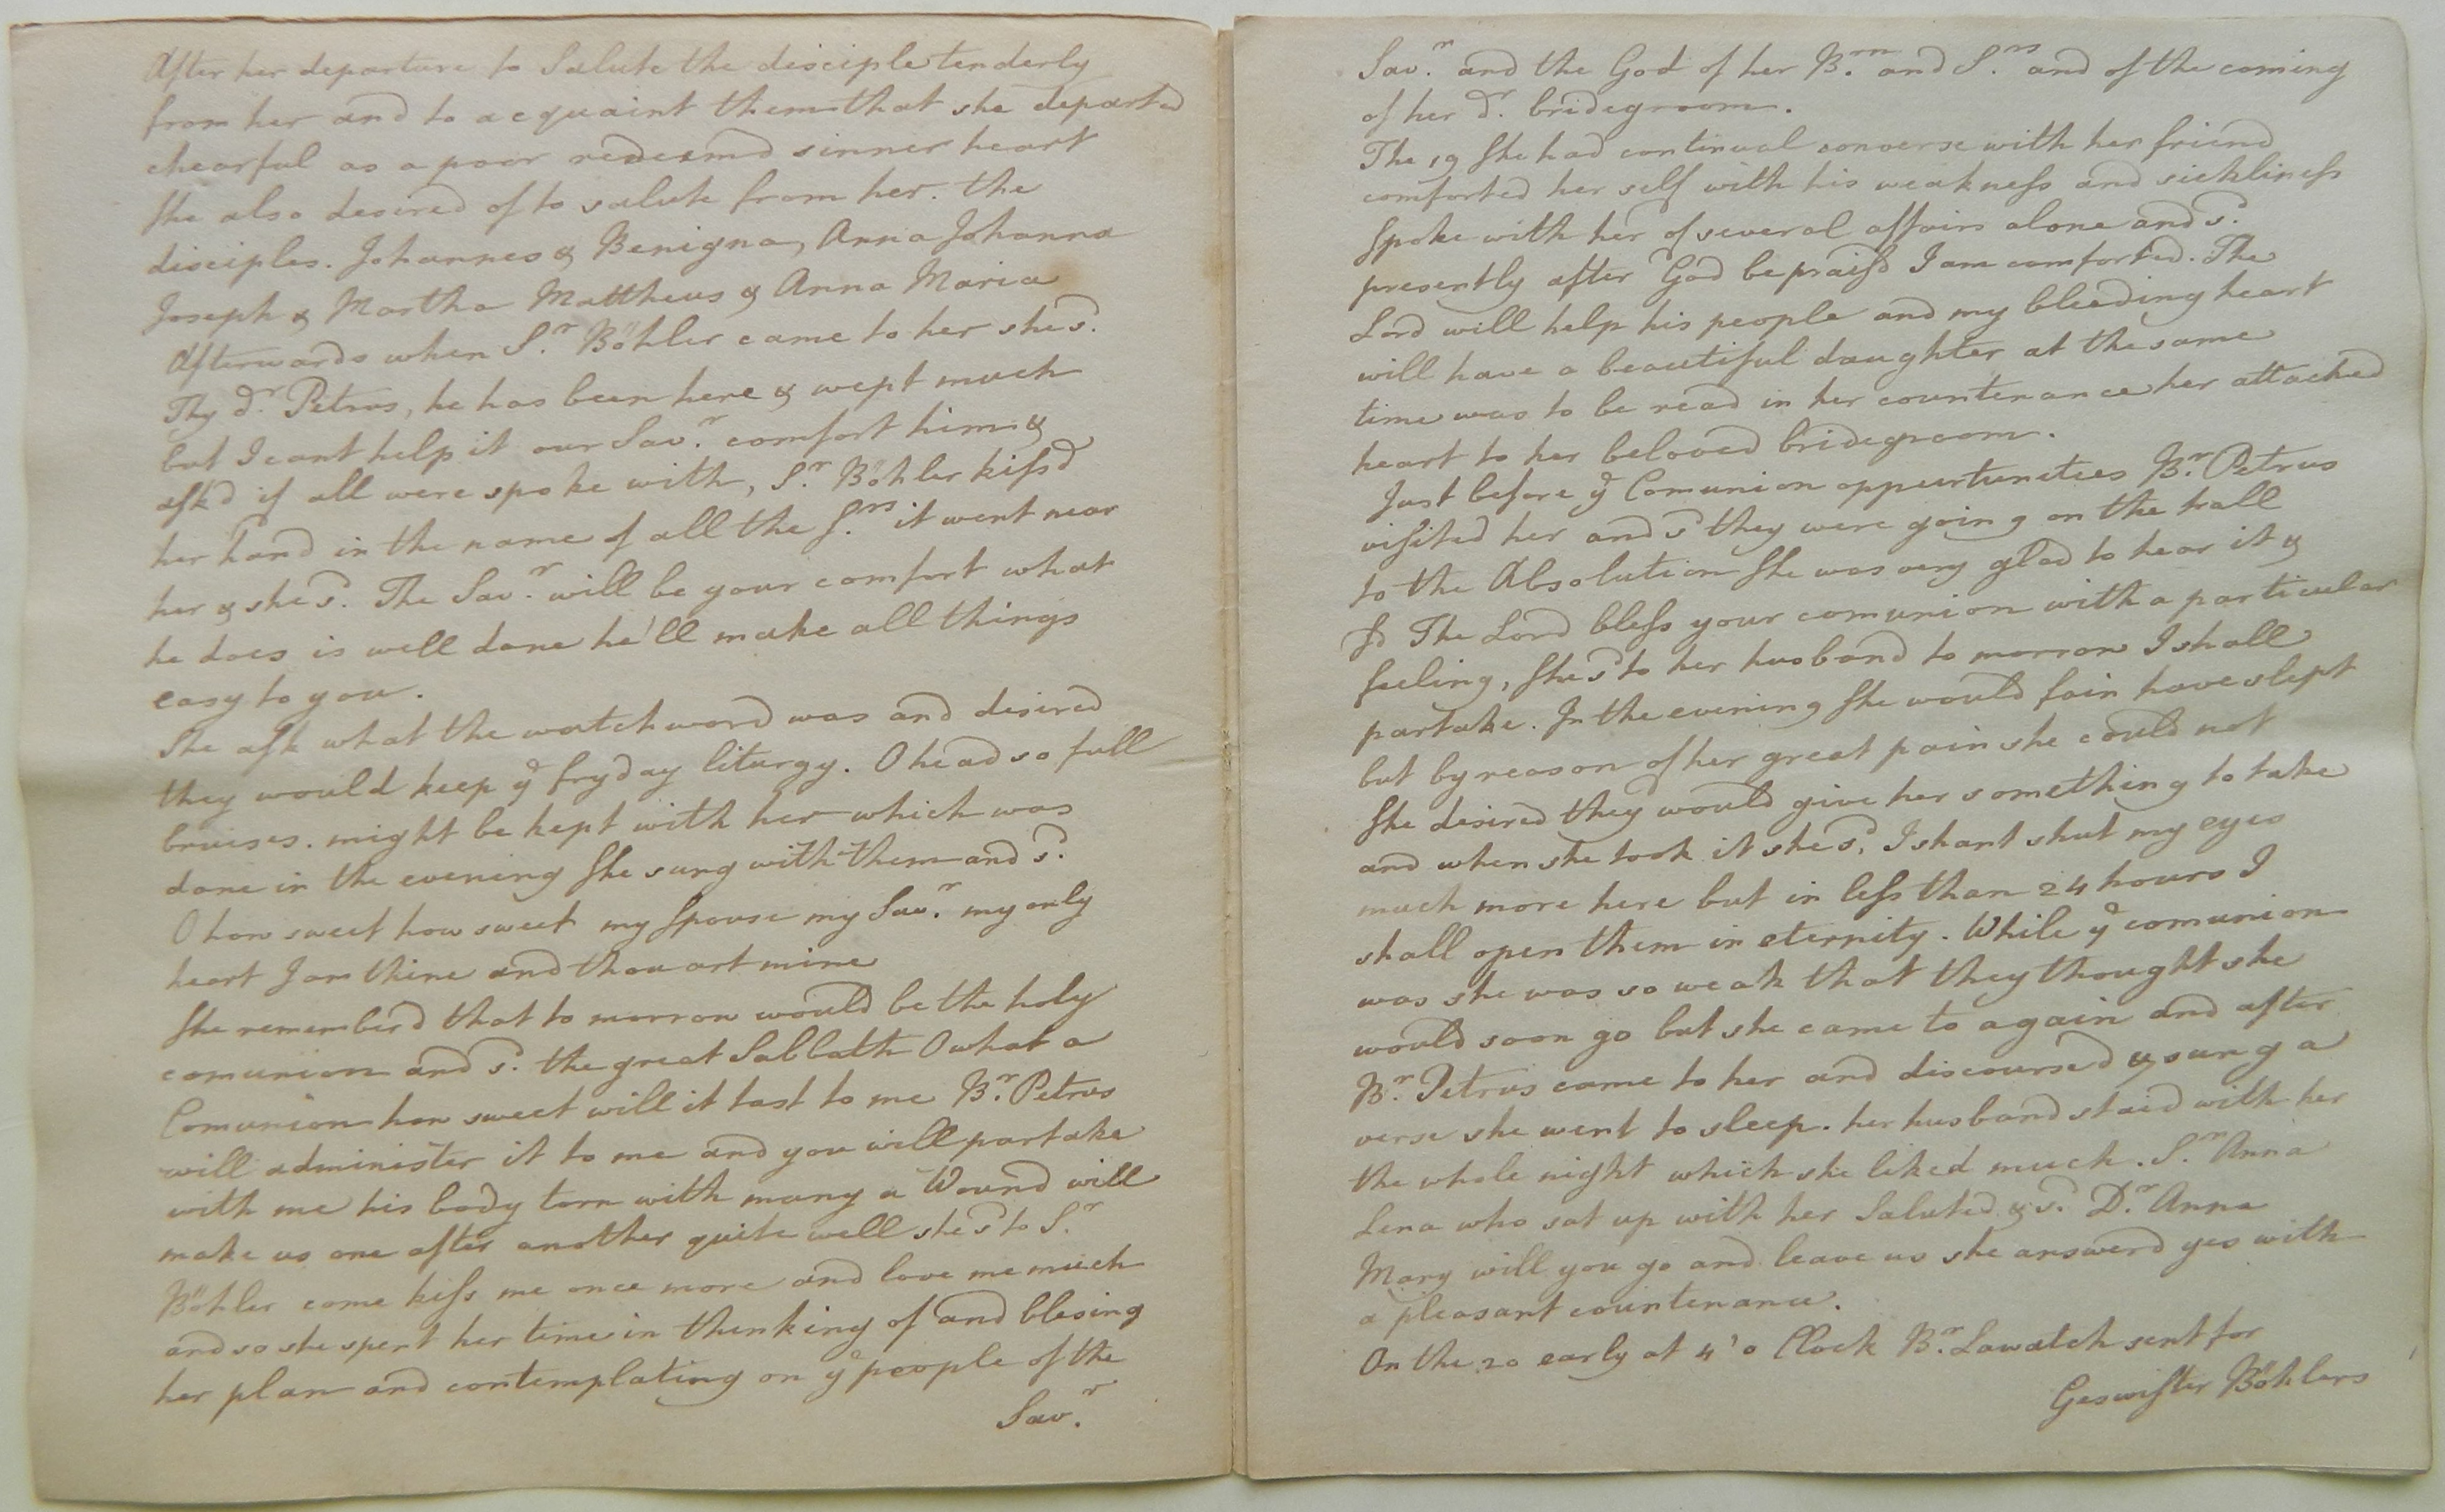 After her departure to Salute the disciple tenderly
from her and to acquaint them that she departed
chearful as a poor redeemd sinner heart
She also desired of to salute from her. the
disciples. Johannes & Benigna, Anna Johanna
Joseph & Martha Mattheus & Anna Maria
Afterwards when S.r Böhler came to her she sd.
Thy dr. Petrus, he has been here & wept much
but I cant help it our Sav.r comfort him &
askd if all were spoke with, S.r Böhler kissd
her hand in the name of all the S.rs it went near
her & she sd. The Sav.r will be your comfort what
he does is well done he'll make all things
easy to you.
She ask what the watchword was and desired
they would keep ye fryday liturgy. O head so full
bruises. might be kept with her which was
done in the evening She sung with them and sd.
O how sweet how sweet my Spouse my Sav.r my only
heart I am thine and thou art mine
She rememberd that to morrow would be the holy
comunion and sd. the great Sabbath O what a
Comunion how sweet will it tast to me B.r Petrus
will administer it to me and you will partake
with me his body torn with many a Wound will
make us one after another quite well she sd to S.r
Böhler come kiss me once more and love me much
and so she spent her time in thinking of and blesing
her plan and contemplating on ye people of the
Sav.r
Sav.r and the God of her B.rn and S.rs and of the coming
of her dr. bridegroom.
The 19 She had continual converse with her friend
comforted her self with his weakness and sickliness
Spoke with her of several affairs alone and sd.
presently after God be praisd I am comforted. The
Lord will help his people and my bleeding heart
will have a beautiful daughter, at the same
time was to be read in her countenance her attached
heart to her beloved bridegroom.
Just before ye Comunion oppurtunitees B.r Petrus
visited her and sd they were going on the hall
to the Absolution She was very glad to hear it &
sd The Lord bless your comunion with a particular
feeling, She sd to her husband to morrow I shall
partake. In the evening She would fain have slept
but by reason of her great pain she could not
She desired they would give her something to take
and when she took it she sd, I shant shut my eyes
much more here but in less than 24 hours I
shall open them in eternity. While ye comunion
was she was so weak that they thought she
would soon go but she came to again and after
B.r Petrus came to her and discoursed & sung a
verse she went to sleep. her husband staid with her
the whole night which she liked much. S.r Anna
Lena who sat up with her Saluted & sd. D.r Anna
Mary will you go and leave us she answerd yes with
a pleasant countenance.
On the 20 early at 4'o Clock B.r Lawatch sent for
Geswister Böhlers